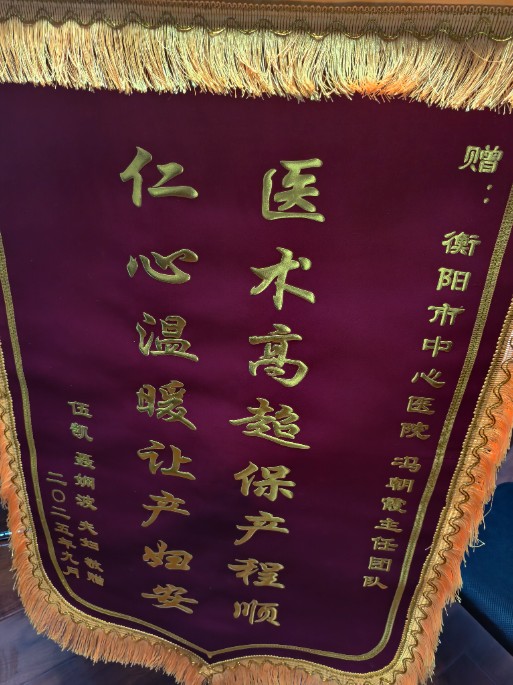 赠：衡阳市中心医院 冯朝霞主任团队
医术高超保产程顺
仁心温暖让产妇安
伍凯 聂娴波 夫妇 敬赠
二〇二五年九月